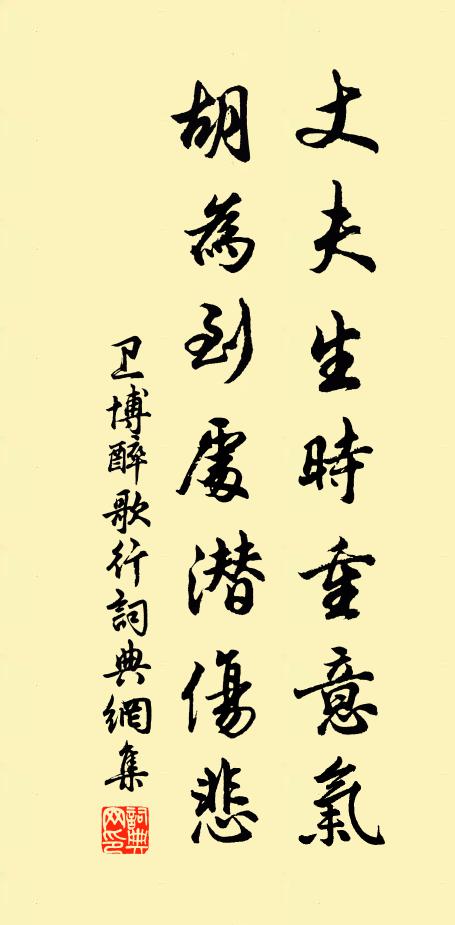 丈夫生時重意氣
胡為到處潜傷悲
卫博醉歌行詞典網集
詞典網印